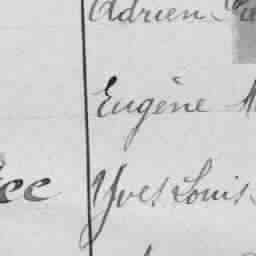 Adrien
Eugène
Yves Louis